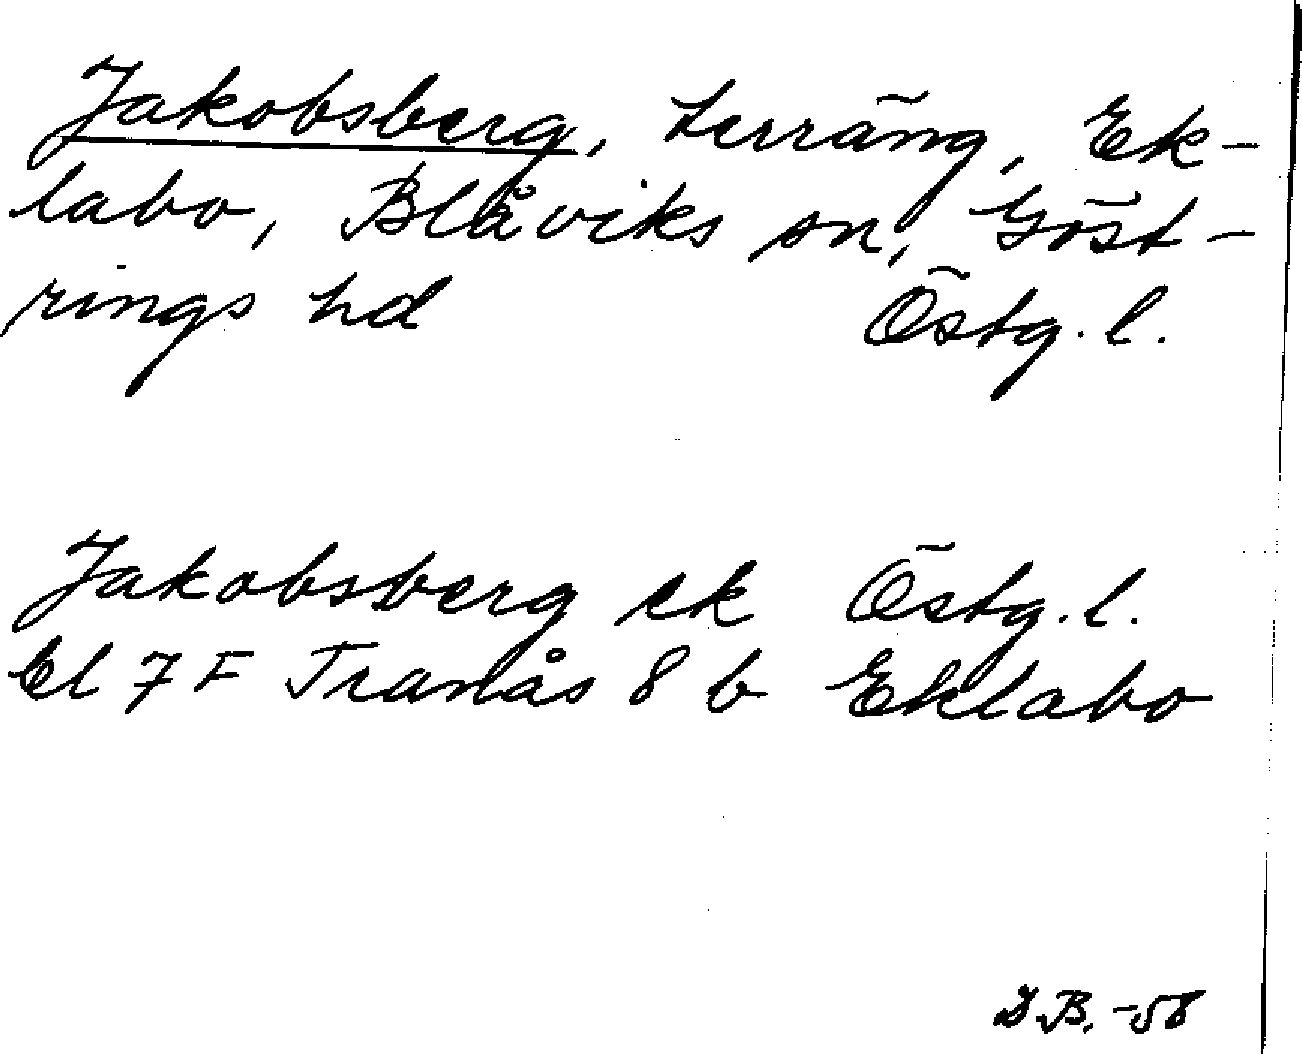 Jakobsberg, terräng, Ek-
labo, Blåviks sn, Göst-
rings hd Östg. l.
Jakobsberg ek Östg. l.
El 7 F Tranås 8 b Eklabo
B. -58